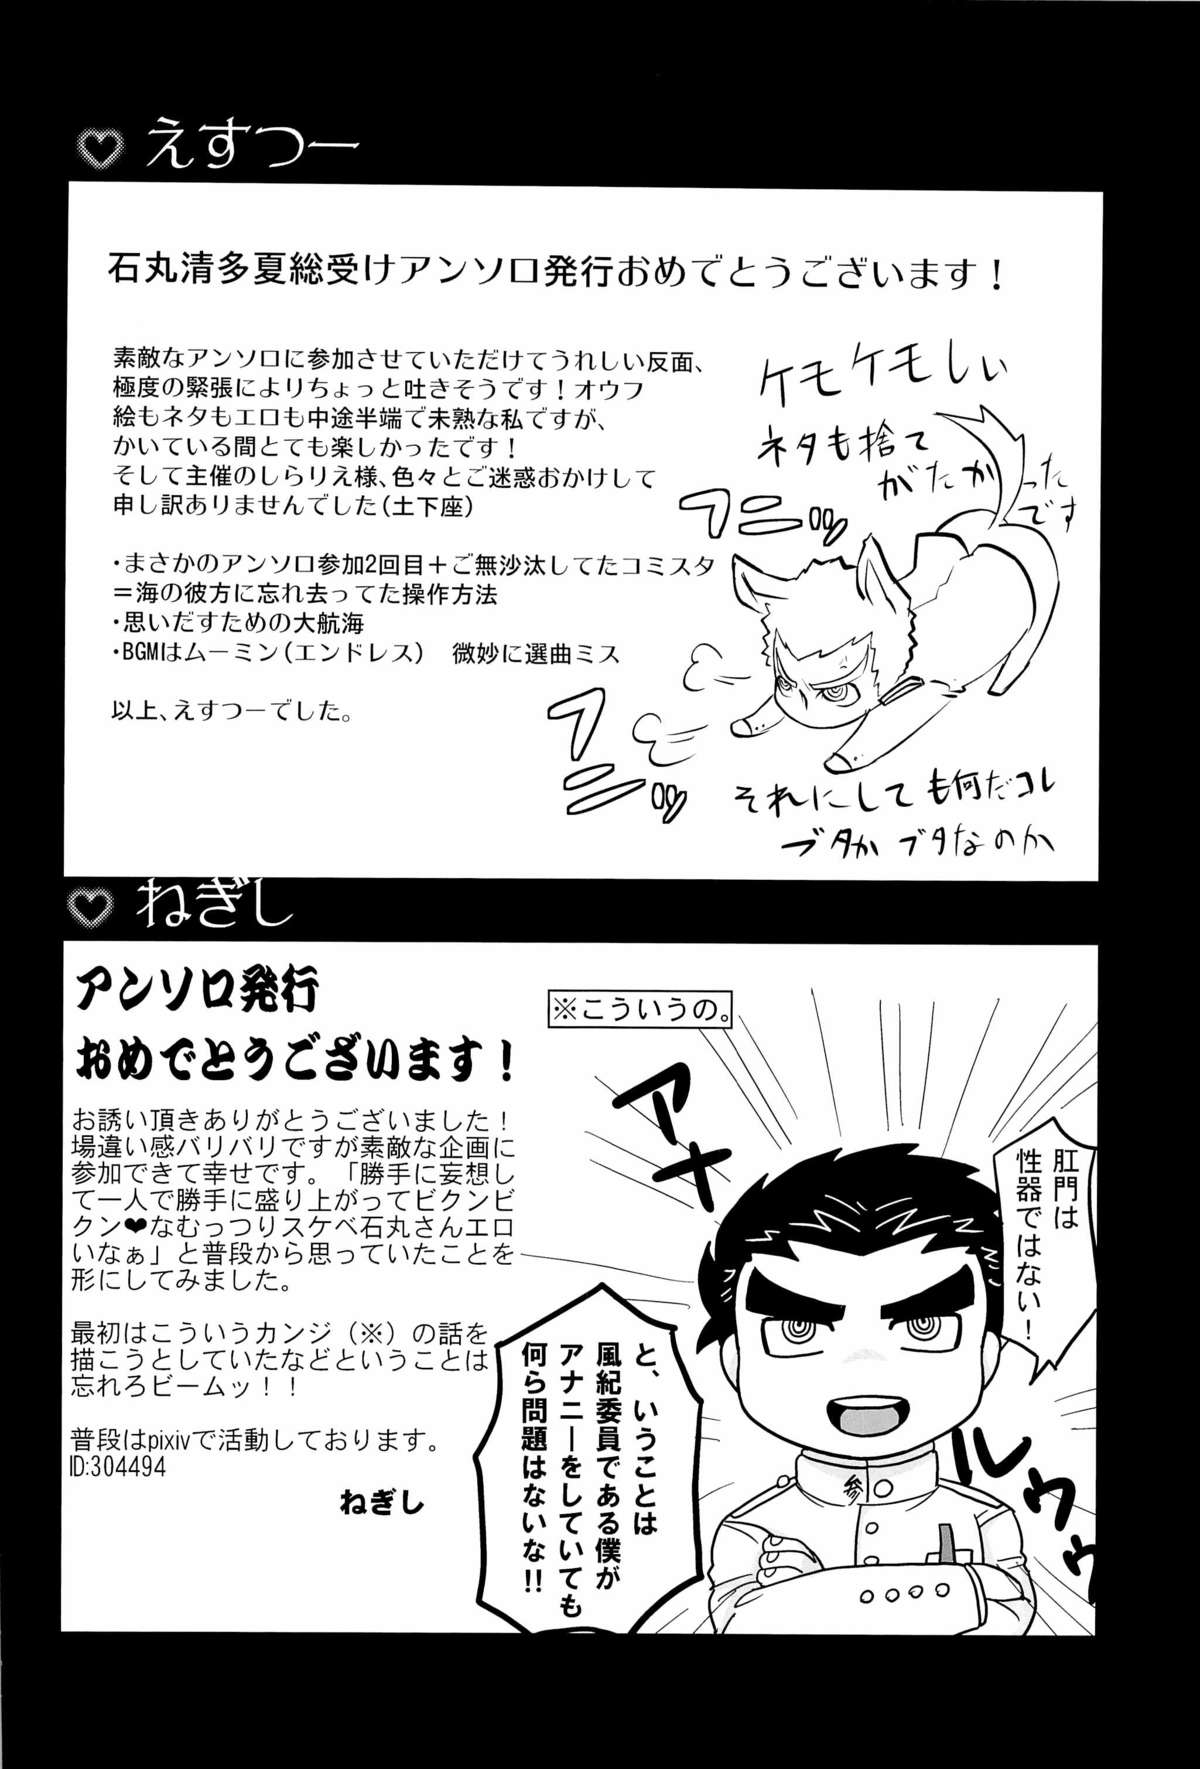 えすつー
石丸清多夏総受けアンソロ発行おめでとうございます！
素敵なアンソロに参加させていただけてうれしい反面、
極度の緊張によりちょっと吐きそうです！オウフ
絵もネタもエロも中途半端で未熟な私ですが、
かいている間とても楽しかったです！
そして主催のしらりえ様、色々とご迷惑おかけして
申し訳ありませんでした（土下座）
・まさかのアンソロ参加2回目＋ご無沙汰してたコミスタ
＝海の彼方に忘れ去ってた操作方法
・思いだすための大航海
・BGMはムーミン（エンドレス）　微妙に選曲ミス
以上、えすつーでした。
ケモケモしい
ネタも捨て
がたかったです
フニッ
フニッ
それにしても何だコレ
ブタか ブタなのか
ねぎし
アンソロ発行
おめでとうございます！
お誘い頂きありがとうございました！
場違い感バリバリですが素敵な企画に
参加できて幸せです。「勝手に妄想し
て一人で勝手に盛り上がってビクンビ
クン❤なむっつりスケベ石丸さんエロ
いなぁ」と普段から思っていたことを
形にしてみました。
最初はこういうカンジ（※）の話を
描こうとしていたなどということは
忘れろビームッ！！
普段はpixivで活動しております。
ID:304494
ねぎし
※こういうの。
アナ
肛門は
性器ではない！
と、いうことは
風紀委員である僕が
アナニーをしていても
何ら問題はないな!!
ルゥゥ
参